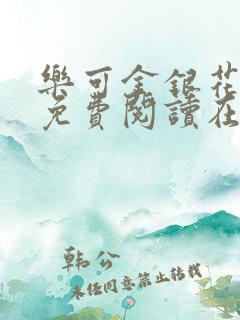 樂可金銀花
免費閱讀在
韩公
未经同意禁止转载